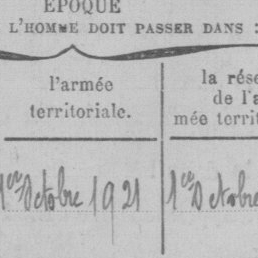 EPOQUE
L'HOMME DOIT PASSER DANS
l'armée
territoriale.
la rése
de l'a
mée territ
1er Octobre 1921
1er Octobre